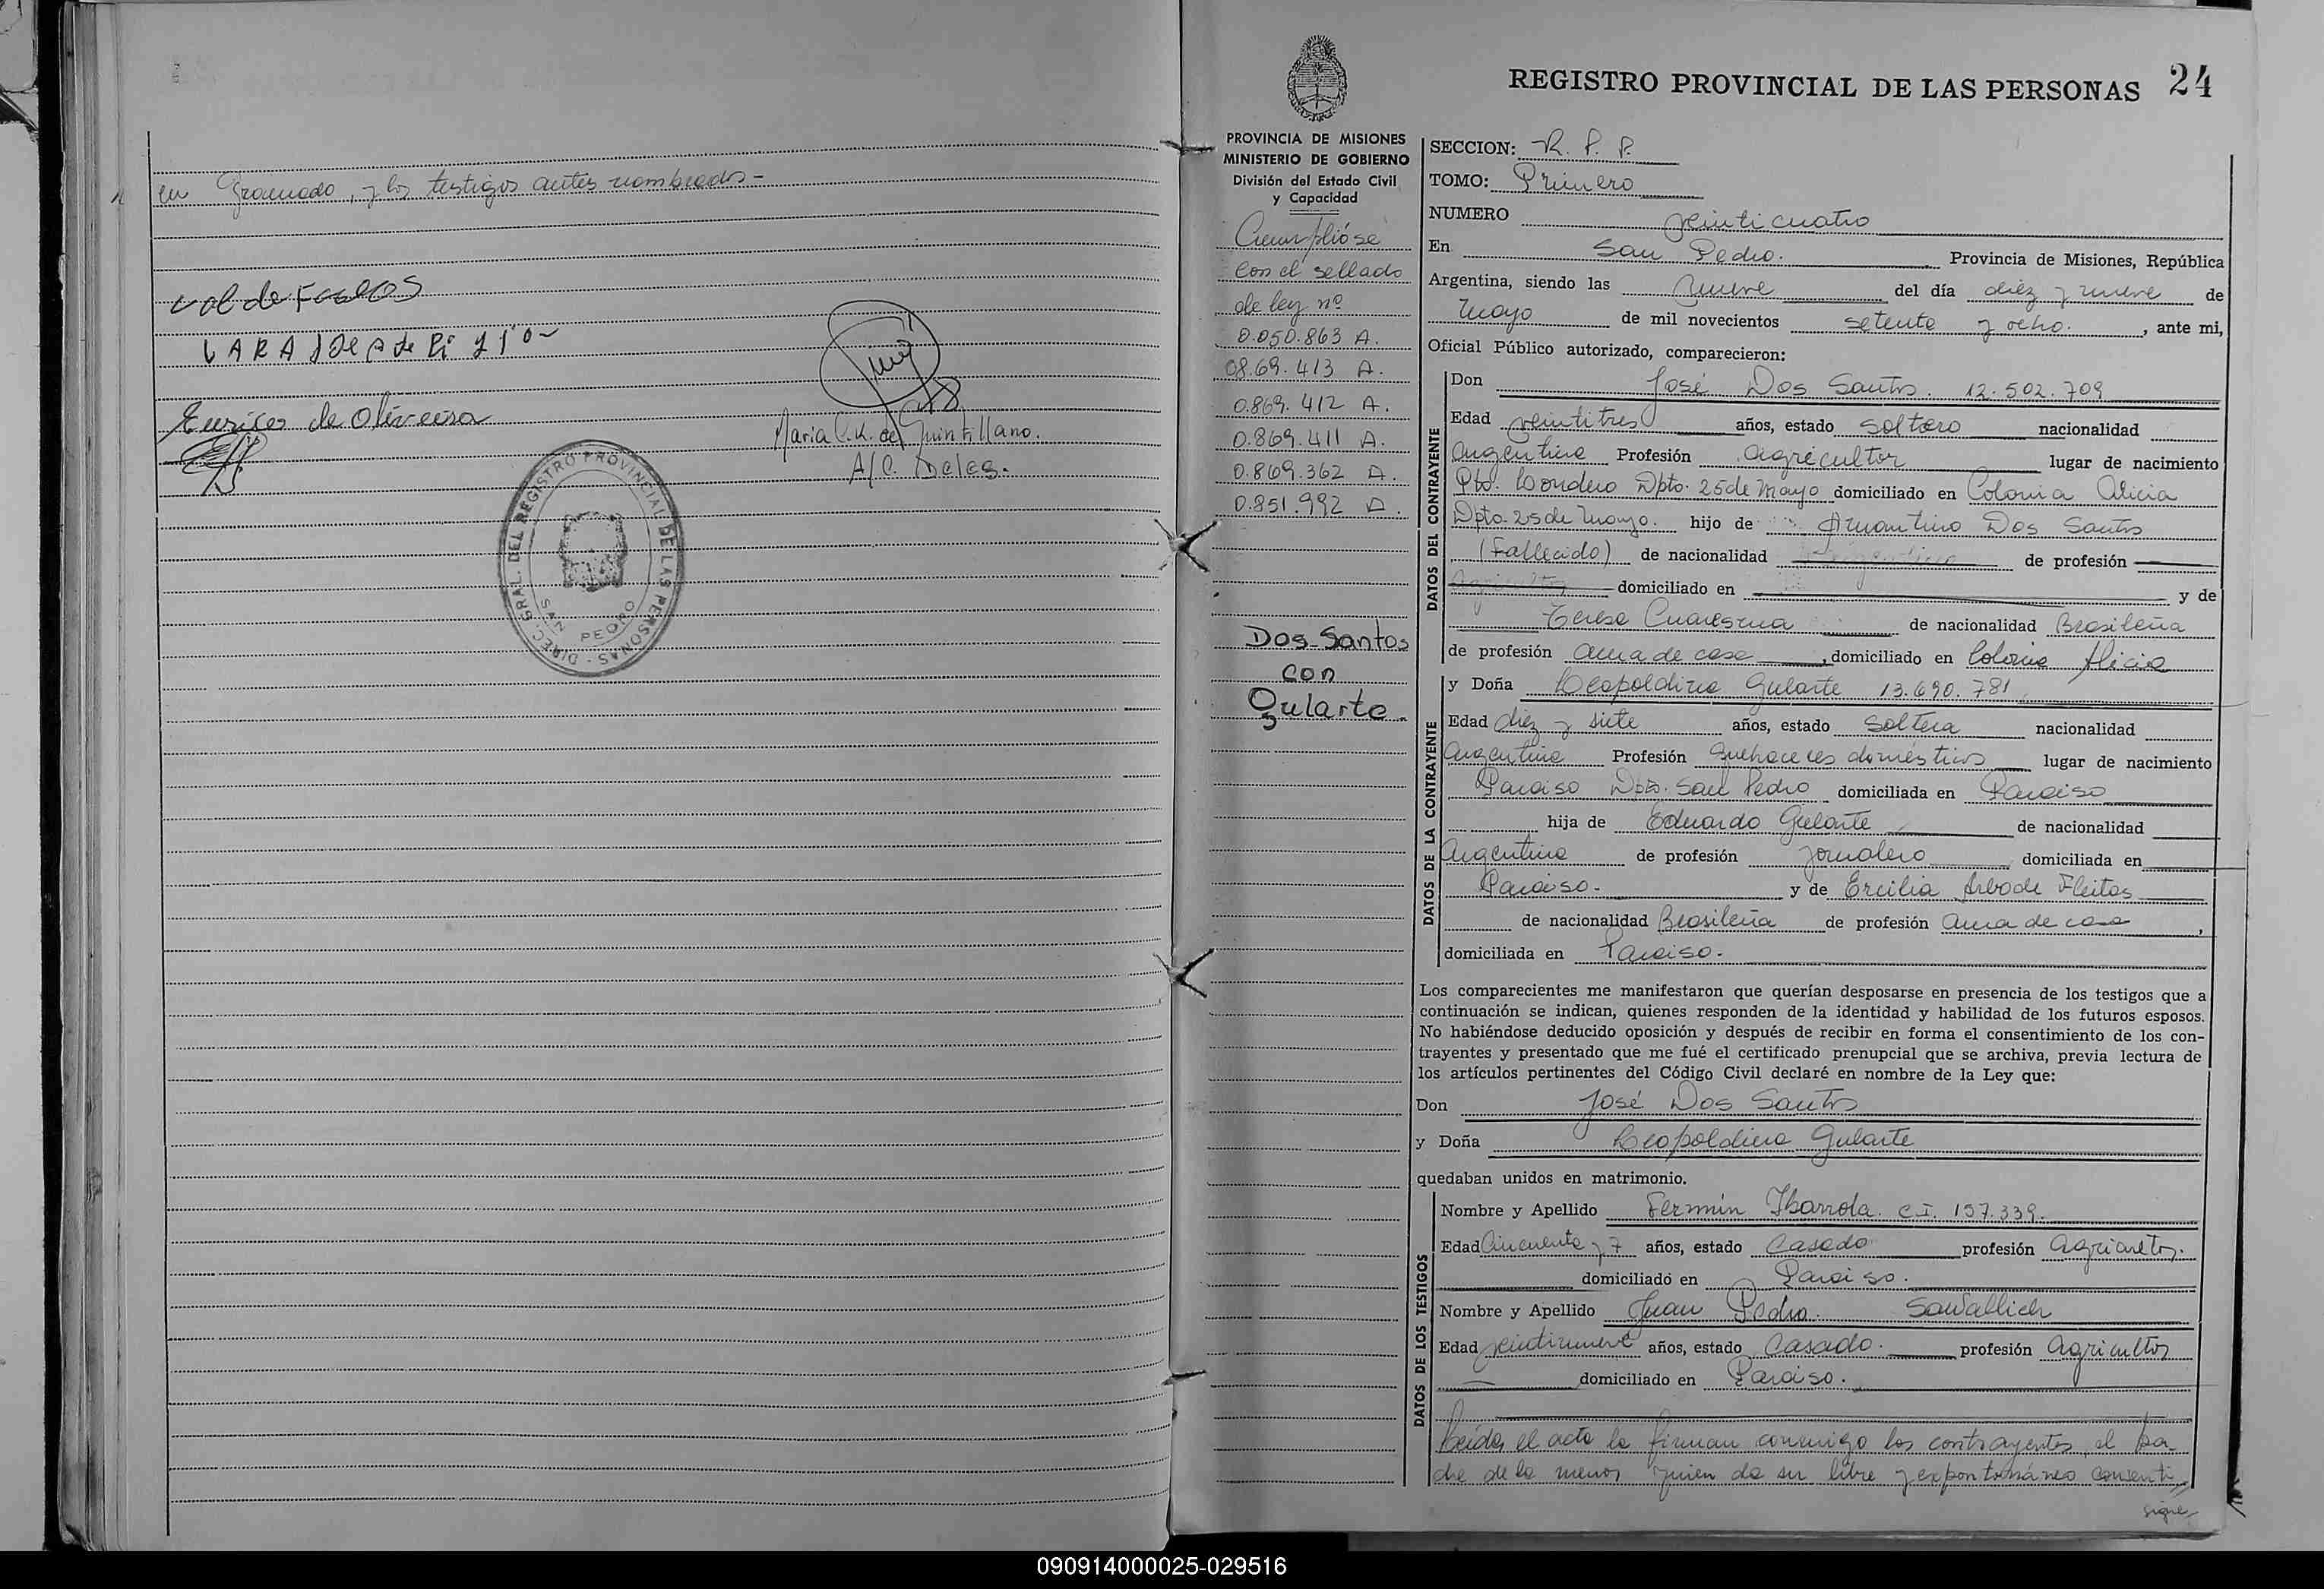 en Gramado, y los testigos antes nombrados -
Eurices de Oliveira
Maria C. K. de Quintillano.
A/C. Deleg.
DIREC. GRAL. DEL REGISTRO PROVINCIAL DE LAS PERSONAS -
SAN PEDRO
REGISTRO PROVINCIAL DE LAS PERSONAS 24
PROVINCIA DE MISIONES
MINISTERIO DE GOBIERNO
División del Estado Civil
y Capacidad
Cumplióse
con el sellado
de ley nº
0.050.863 A.
08.69.413 A.
0.869.412 A.
0.869.411 A.
0.869.362 A.
0.851.992 A.
Dos Santos
con
Gularte.
SECCION: R. P. P.
TOMO: Primero
NUMERO veinticuatro
En San Pedro. Provincia de Misiones, República
Argentina, siendo las nueve del día diéz y nueve de
mayo de mil novecientos setenta y ocho. , ante mi,
Oficial Público autorizado, comparecieron:
DATOS DEL CONTRAYENTE
Don José Dos Santos. 12.502.709
Edad veintitres años, estado soltero nacionalidad
Argentina Profesión agricultor lugar de nacimiento
Pto. Londero Dpto. 25 de Mayo domiciliado en Colonia Alicia
Dpto. 25 de Mayo. hijo de Armantino Dos Santos
(Fallecido) de nacionalidad de profesión
agricultor domiciliado en y de
Teresa Cuaresma de nacionalidad Brasileña
de profesión ama de casa , domiciliado en Colonia Alicia
DATOS DE LA CONTRAYENTE
y Doña Leopoldina Gularte 13.690.781
Edad diez y siete años, estado soltera nacionalidad
Argentina Profesión quehaceres domésticos lugar de nacimiento
Paraiso Dpto. San Pedro domiciliada en Paraiso
hija de Eduardo Gularte de nacionalidad
Argentina de profesión jornalero domiciliada en
Paraiso. y de Ercilia Arbode Fleitas
de nacionalidad Brasileña de profesión ama de casa ,
domiciliada en Paraiso.
Los comparecientes me manifestaron que querían desposarse en presencia de los testigos que a
continuación se indican, quienes responden de la identidad y habilidad de los futuros esposos.
No habiéndose deducido oposición y después de recibir en forma el consentimiento de los con-
trayentes y presentado que me fué el certificado prenupcial que se archiva, previa lectura de
los artículos pertinentes del Código Civil declaré en nombre de la Ley que:
Don José Dos Santos
y Doña Leopoldina Gularte
quedaban unidos en matrimonio.
DATOS DE LOS TESTIGOS
Nombre y Apellido Fermín Ibarrola. C.I. 157.339.
Edad Cincuenta y 7 años, estado Casado profesión agricultor.
domiciliado en Paraiso.
Nombre y Apellido Juan Pedro. Sawallich
Edad veintinueve años, estado Casado. profesión agricultor
domiciliado en Paraiso.
Leida el acta la firman conmigo los contrayentes, el pa-
dre de la menor quien da su libre y expontanáneo consenti-
sigue
090914000025-029516